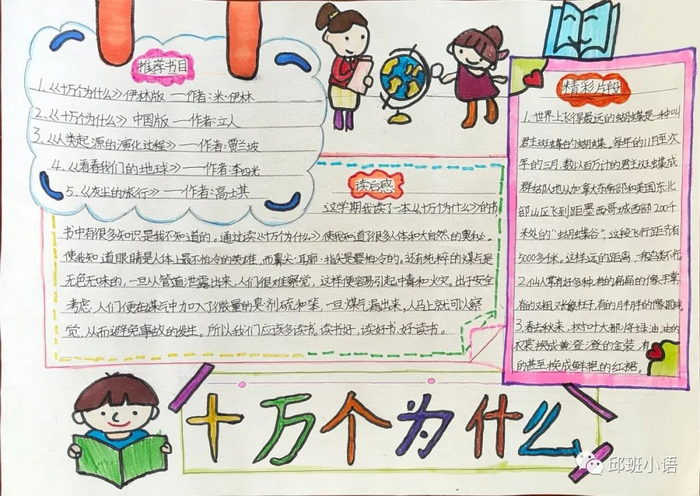 推荐书目
1.《十万个为什么》伊林版——作者:米·伊林
2.《十万个为什么》中国版——作者:立人
3.《人类起源的演化过程》——作者:贾兰坡
4.《看看我们的地球》——作者:李四光
5.《灰尘的旅行》——作者:高士其
读后感
这学期我读了一本《十万个为什么》的书
书中有很多知识是我不知道的。通过读《十万个为什么》使我知道了很多人体和大自然的奥秘。
使我知道眼睛是人体上最不怕冷的英雄,而鼻尖、耳廓、指尖是最怕冷的,还有纯粹的煤气是
无色无味的,一旦从管道泄露出来,人们很难察觉,这样便容易引起中毒和火灾,出于安全
考虑,人们便在煤气中加入了微量的臭剂硫和苯,一旦煤气漏出来,人马上就可以察
觉,从而避免事故的发生。所以我们应该多读书,读书好,读好书,好读书。
精彩片段
1.世界上飞得最远的蝴蝶是一种叫
君主斑蝶的蝴蝶。每年的11月至次
年的三月,数以百万计的君主斑蝶成
群结队地从加拿大东南部和美国东北
部山区飞到距墨西哥城西部200千
米处的“蝴蝶谷”,这段飞行距离有
5000多米。这样远的距离,
2.仙人掌有好多种,有的扁扁的像手掌,
有的又粗又长像柱子,有的月半月半的像圆球。
3.春去秋来,树叶大都将绿油油的
衣裳换成黄澄澄的金装,有
的甚至换成鲜艳的红裙。
十万个为什么
邱班小语